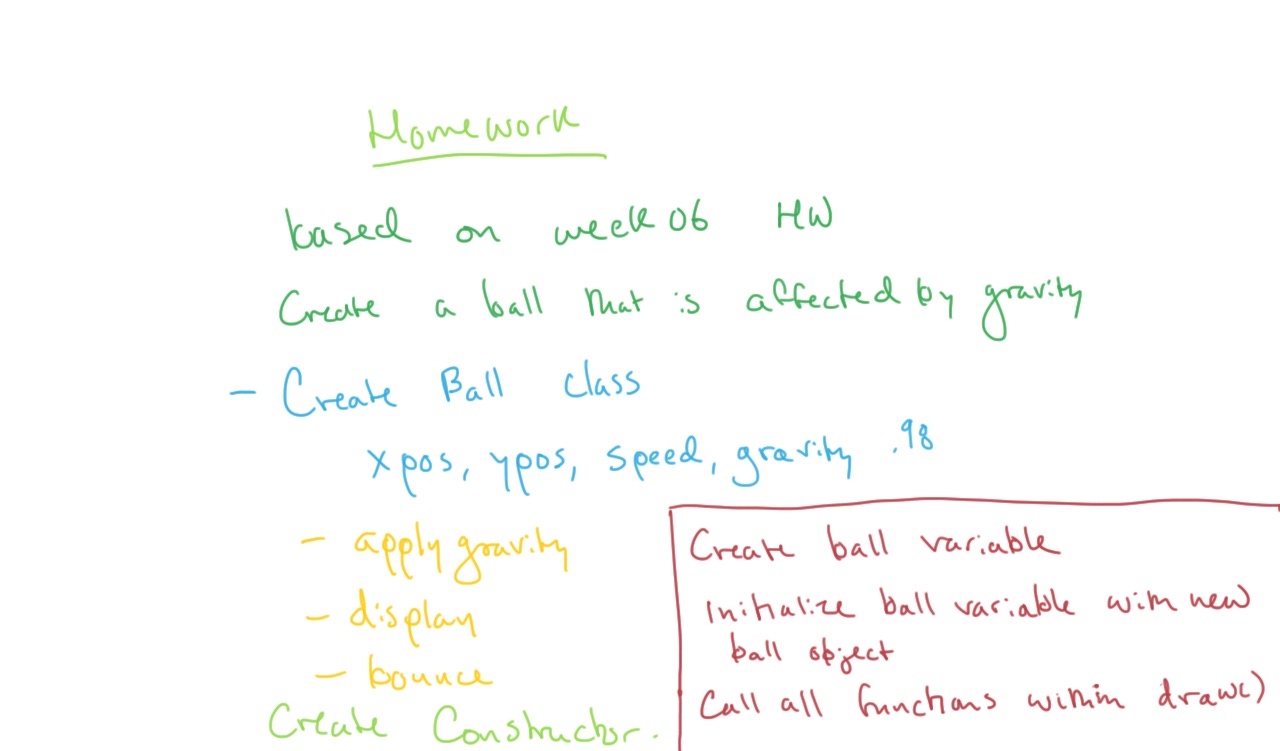 Homework
based on week 06 HW
Create a ball that is affected by gravity
- Create Ball class
xpos, ypos, speed, gravity .98
- apply gravity
- display
- bounce
Create Constructor.
Create ball variable
Initialize ball variable with new
ball object
Call all functions within draw()